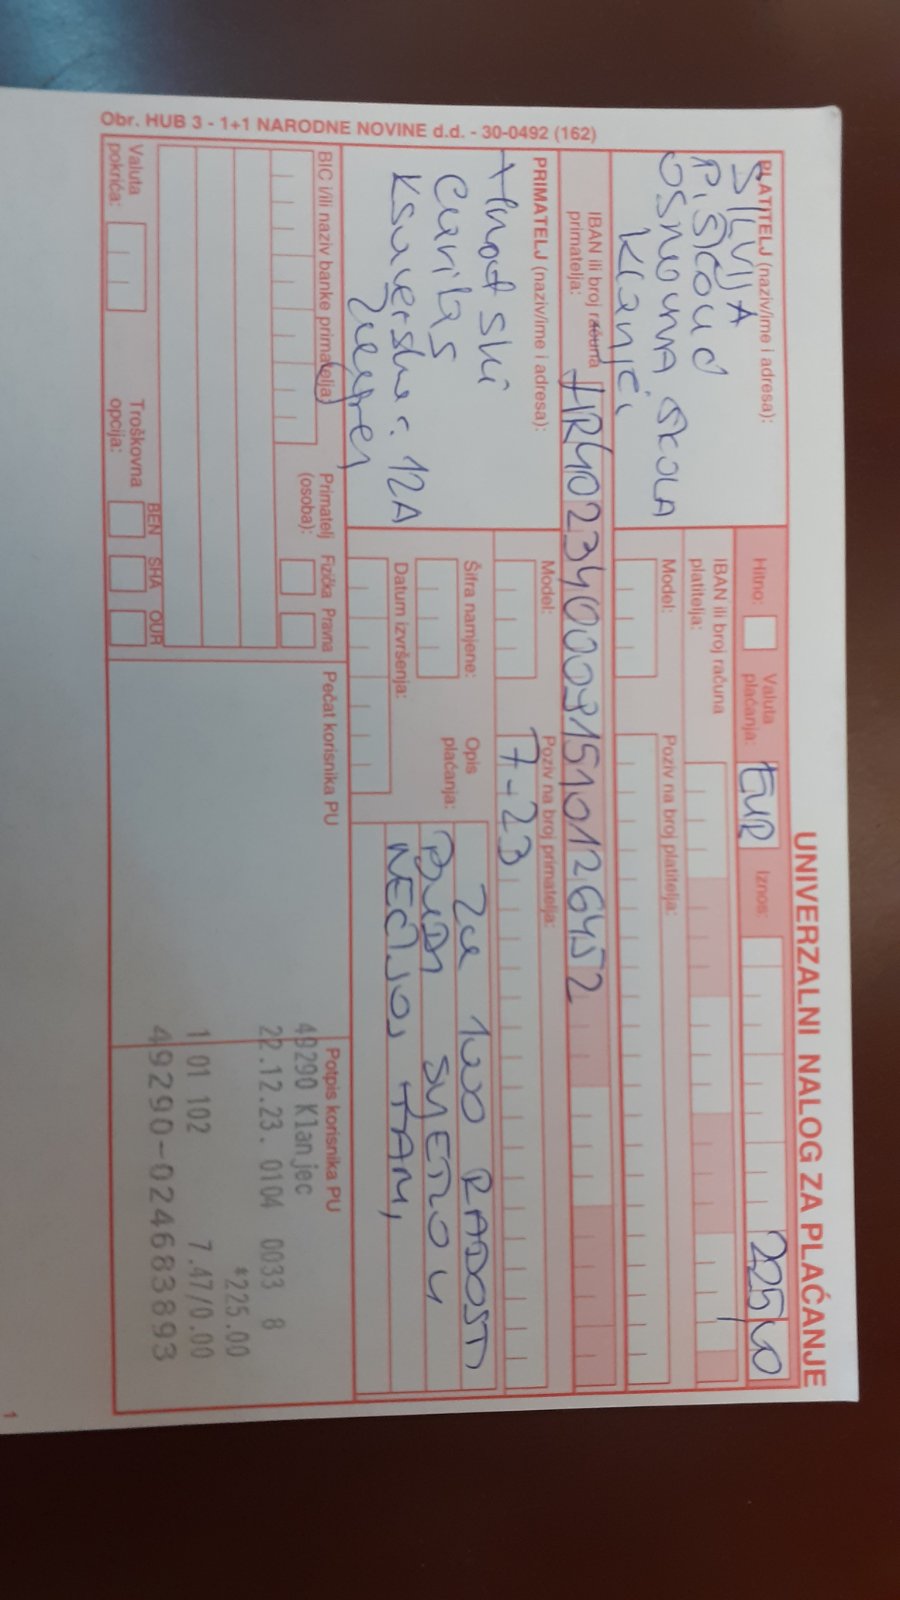 Obr. HUB 3 - 1+1 NARODNE NOVINE d.d. - 30-0492 (162)
UNIVERZALNI NALOG ZA PLAĆANJE
PLATITELJ (naziv/ime i adresa):
SILVIJA
PIŠČAUC
OSNOVNA ŠKOLA
Klanjec
Hitno:
Valuta plaćanja:
EUR
Iznos:
225,00
IBAN ili broj računa platitelja:
Model:
Poziv na broj platitelja:
IBAN ili broj računa primatelja:
HR4023400091510126452
PRIMATELJ (naziv/ime i adresa):
Hrvatski
Caritas
Ksaverska c. 12A
Zagreb
Model:
Poziv na broj primatelja:
7-23
Šifra namjene:
Opis plaćanja:
Za 1000 RADOSTI
BUDI SVJETLO U
NEČIJOJ TAMI,
Datum izvršenja:
BIC i/ili naziv banke primatelja:
Primatelj (osoba):
Fizička
Pravna
Valuta pokrića:
Troškovna opcija:
BEN
SHA
OUR
Pečat korisnika PU
Potpis korisnika PU
49290 Klanjec
22.12.23. 0104 0033 8
*225.00
1 01 102 7.47/0.00
49290-024683893
1